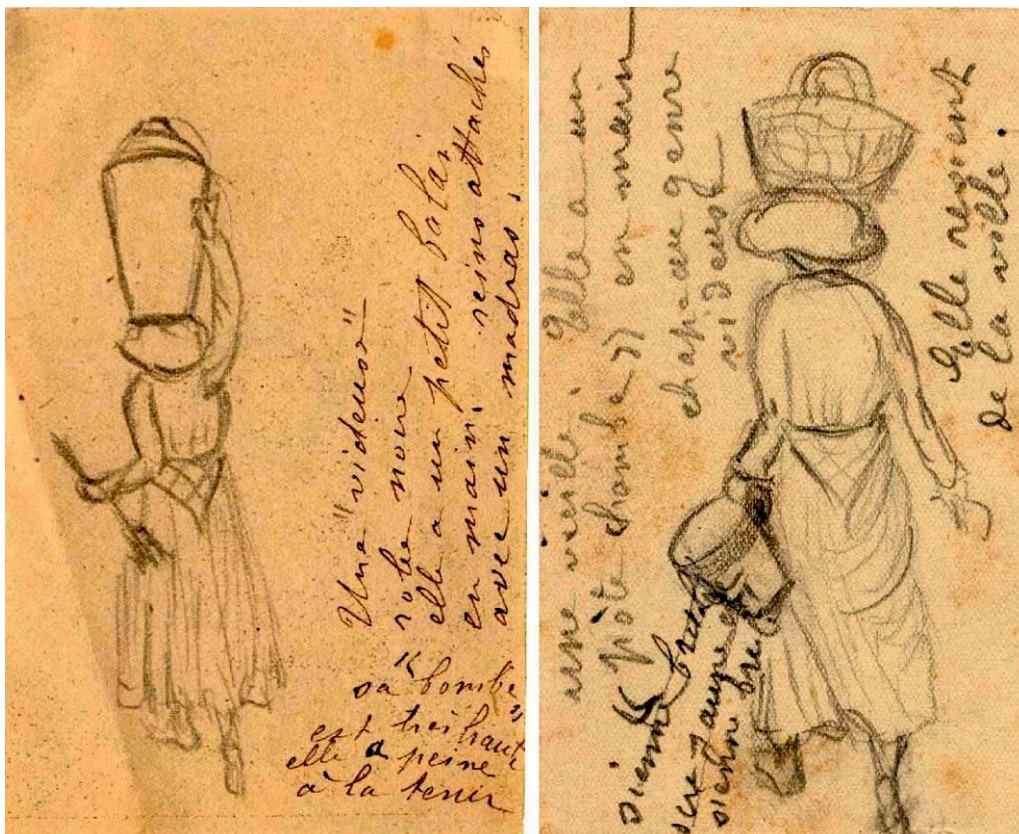 Une "videuse"
robe noire
elle a un petit balai
en main. reins attachés
avec un madras.
sa "bombe"
est très haute
elle a peine
à la tenir
une vieille. Elle a un
"pôte chambe" en main
chapeau genre
videuse
Elle revient
de la ville.
sienne
jaune et
sienne